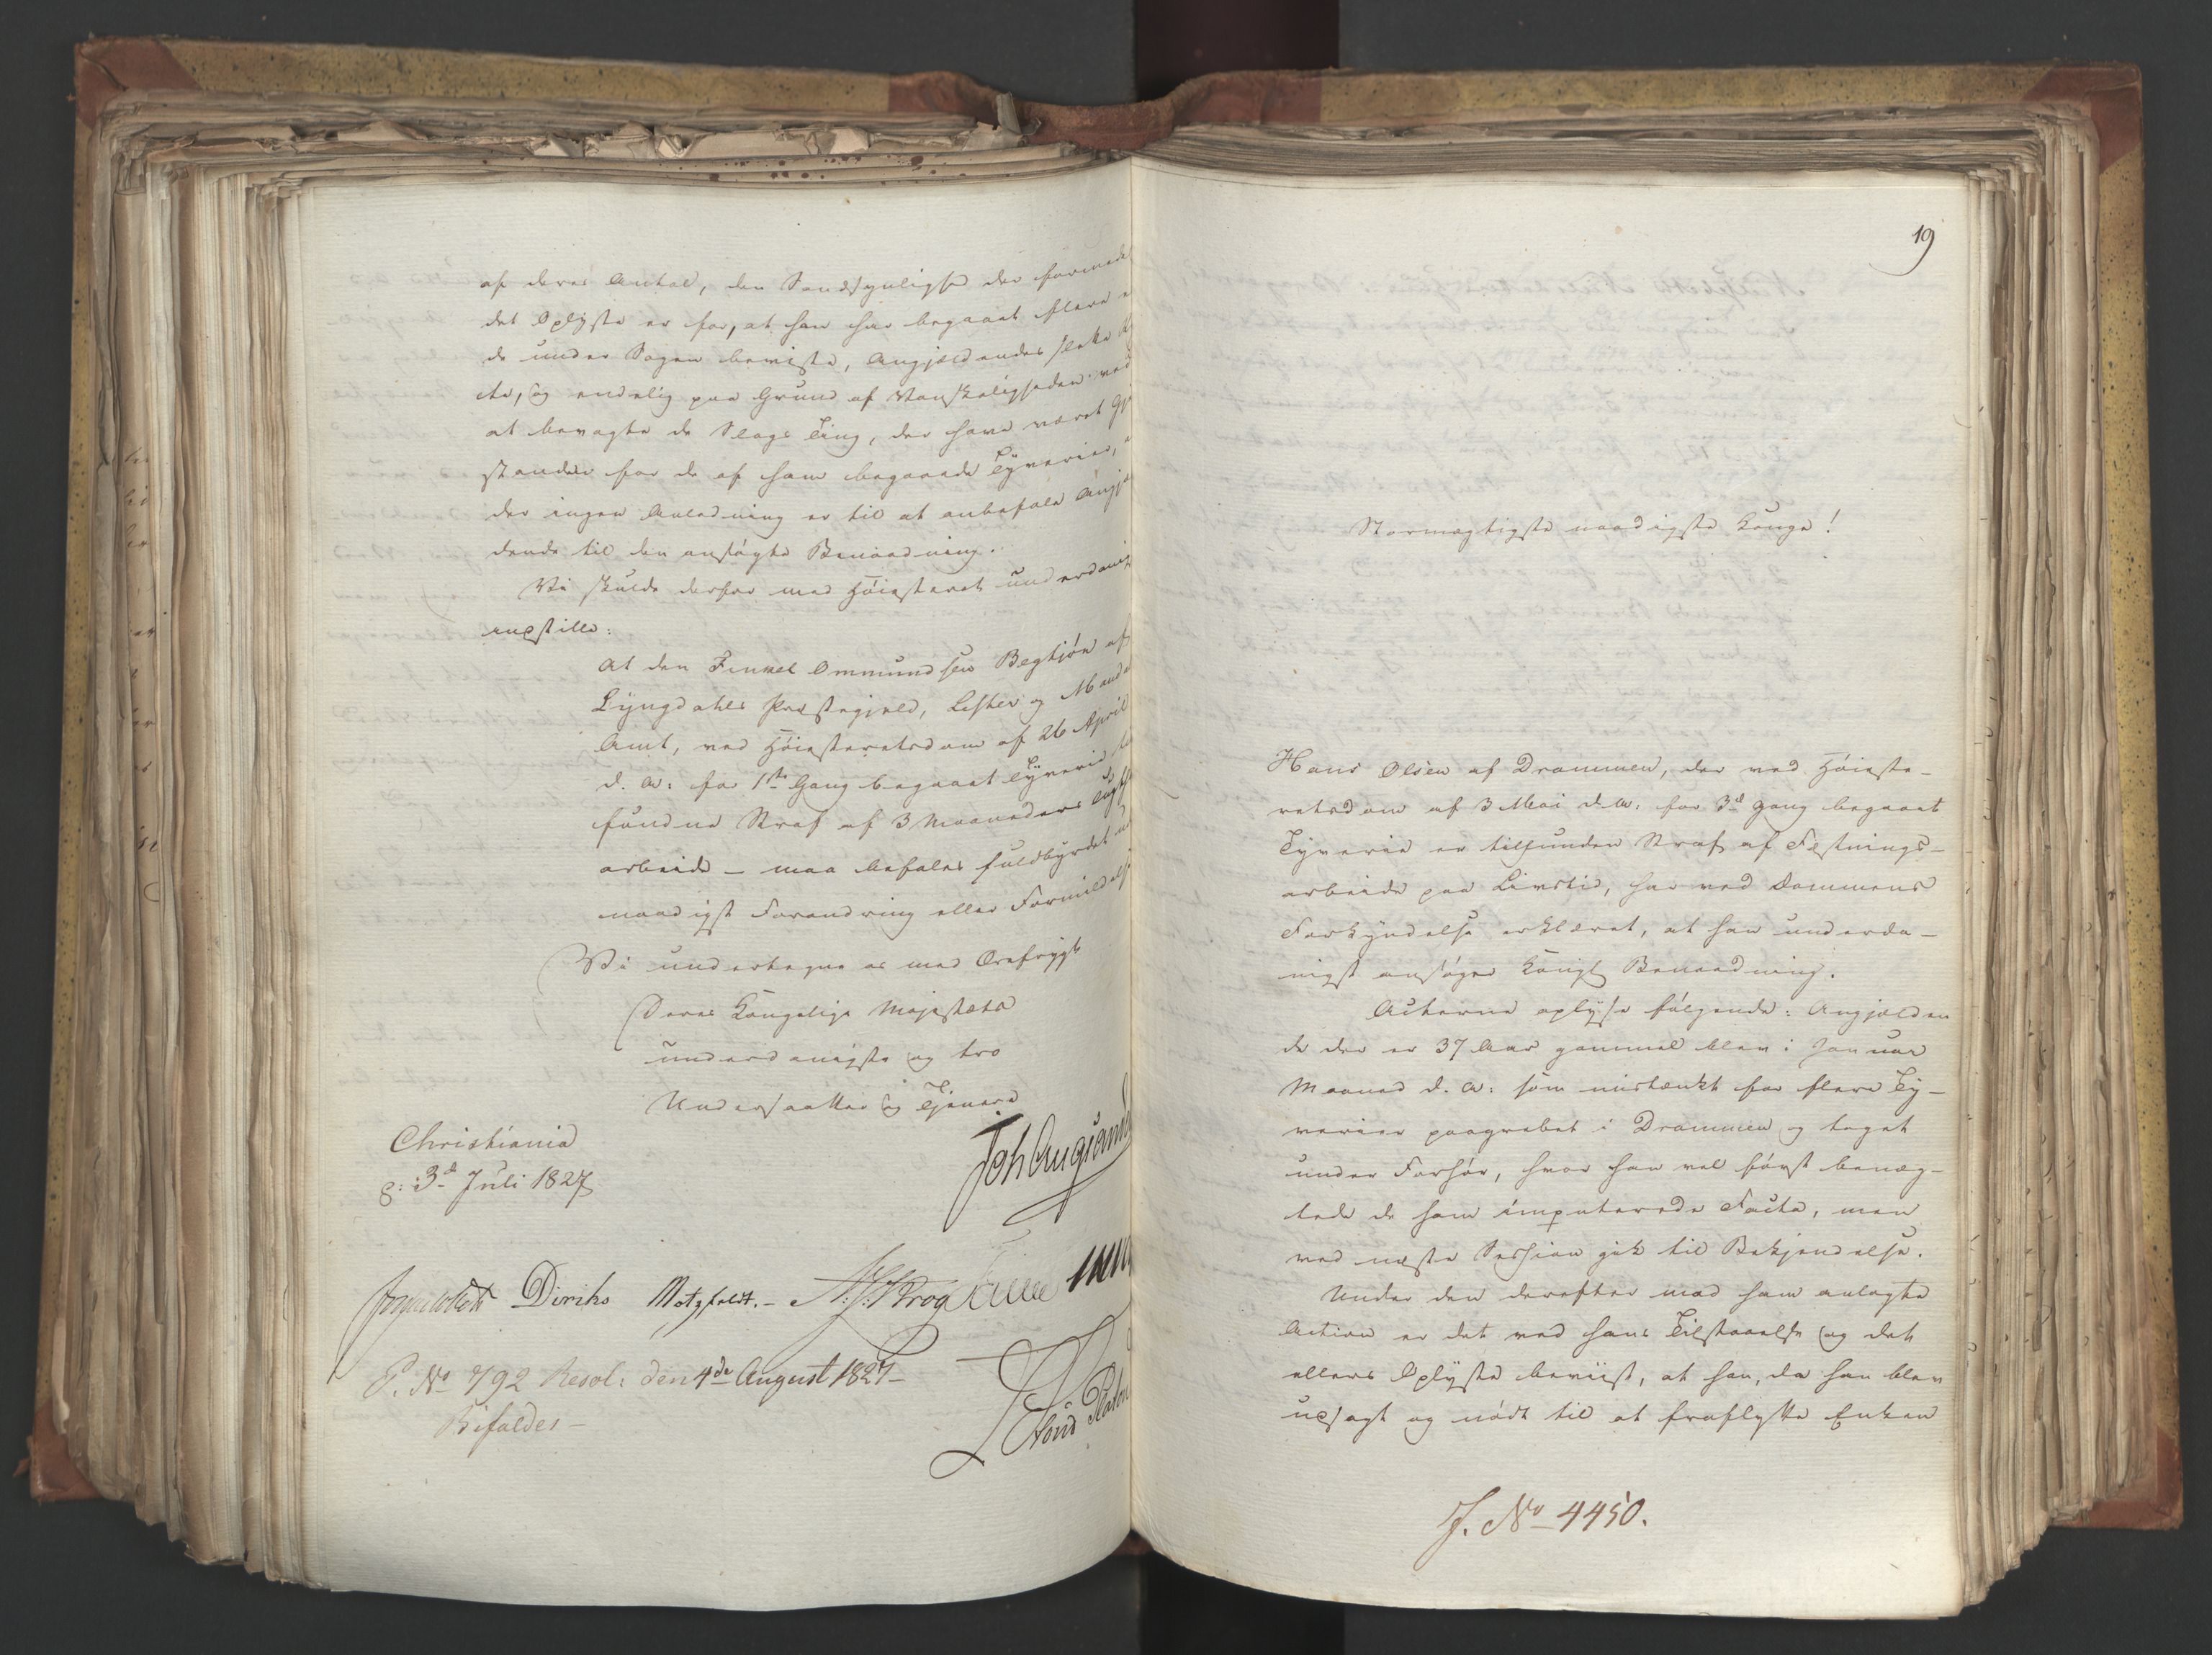 af deres Antal, den Sandsynlighed der formedelst
det Oplyste er for, at han har begaaet flere end
de under Sagen beviste, Angjældendes slette
og endelig paa Grund af Vanskeligheden ved
at bevogte de Slags Ting, der have været Gjen-
stande for de af ham begaaede Tyverier,
der ingen Anledning er til at anbefale Angjæl-
dende til den ansøgte Benaadning.
Vi skulde derfor med Høiesteret underdanigst
indstille:
At den Tinkel Ommundsen Begtjøn af
Lyngdahls Præstegjeld, Lister og Mandals
Amt, ved Høiesteretsdom af 26 April
d. A: for 1ste Gang begaaet Tyverie
fundne Straf af 3 Maaneders Tugthus-
arbeide – maa befales fuldbyrdet uden
naadigst Forandring eller Formildelse
Vi undertegne os med Ærefrygt
Deres Kongelige Majestæts
underdanigste og tro
Undersaatter og Tjenere
Christiania
d: 3d Juli 1827
Diriks Motzfeldt. – Krog
P. No 792 Resol: den 4de August 1827 –
Bifaldes –
19
Stormægtigste naadigste Konge!
Hans Olsen af Drammen, der ved Høieste-
retsdom af 3 Mai d. A: for 3d Gang begaaet
Tyverie er tilfunden Straf af Fæstnings-
arbeide paa Livstid, har ved Dommens
Forkyndelse erklæret, at han underda-
nigst ansøger Kongl Benaadning.
Acterne oplyse følgende: Angjælden
de der er 37 Aar gammel blev i Januar
Maaned d. A: som mistænkt for flere Ty-
verier paagrebet i Drammen og taget
under Forhør, hvor han vel først benæg-
tede de ham imputerede Facta, men
ved næste Session gik til Bekjendelse.
Under den derefter mod ham anlagte
Action er det ved hans Tilstaaelse og det
ellers Oplyste beviist, at han, da han blev
udsagt og nødt til at fraflytte Enken
J. No 4450.